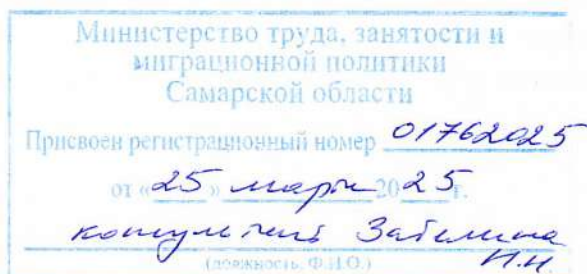 Министерство труда, занятости и
миграционной политики
Самарской области
Присвоен регистрационный номер 01762025
от «25» марта 2025г.
консультант Забелина
И.И.
(должность, Ф.И.О.)